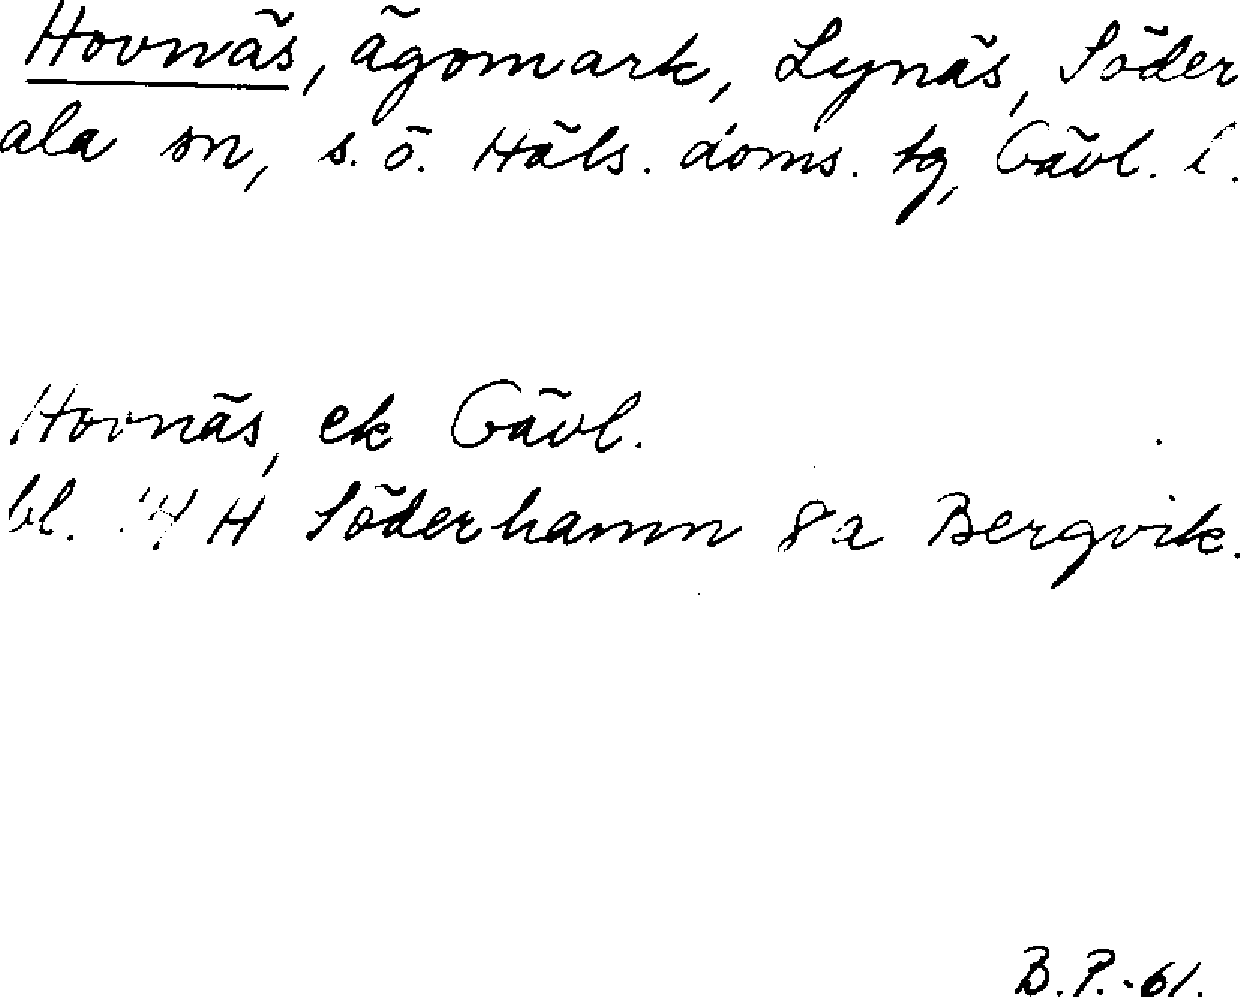 Hovnäs, ägomark, Lynäs, Söder
ala sn, s. ö. Häls. doms. tg, Gävl. l.
Hovnäs, ek Gävl.
bl. 14 H Söderhamn 8a Bergvik.
B. P. -61.